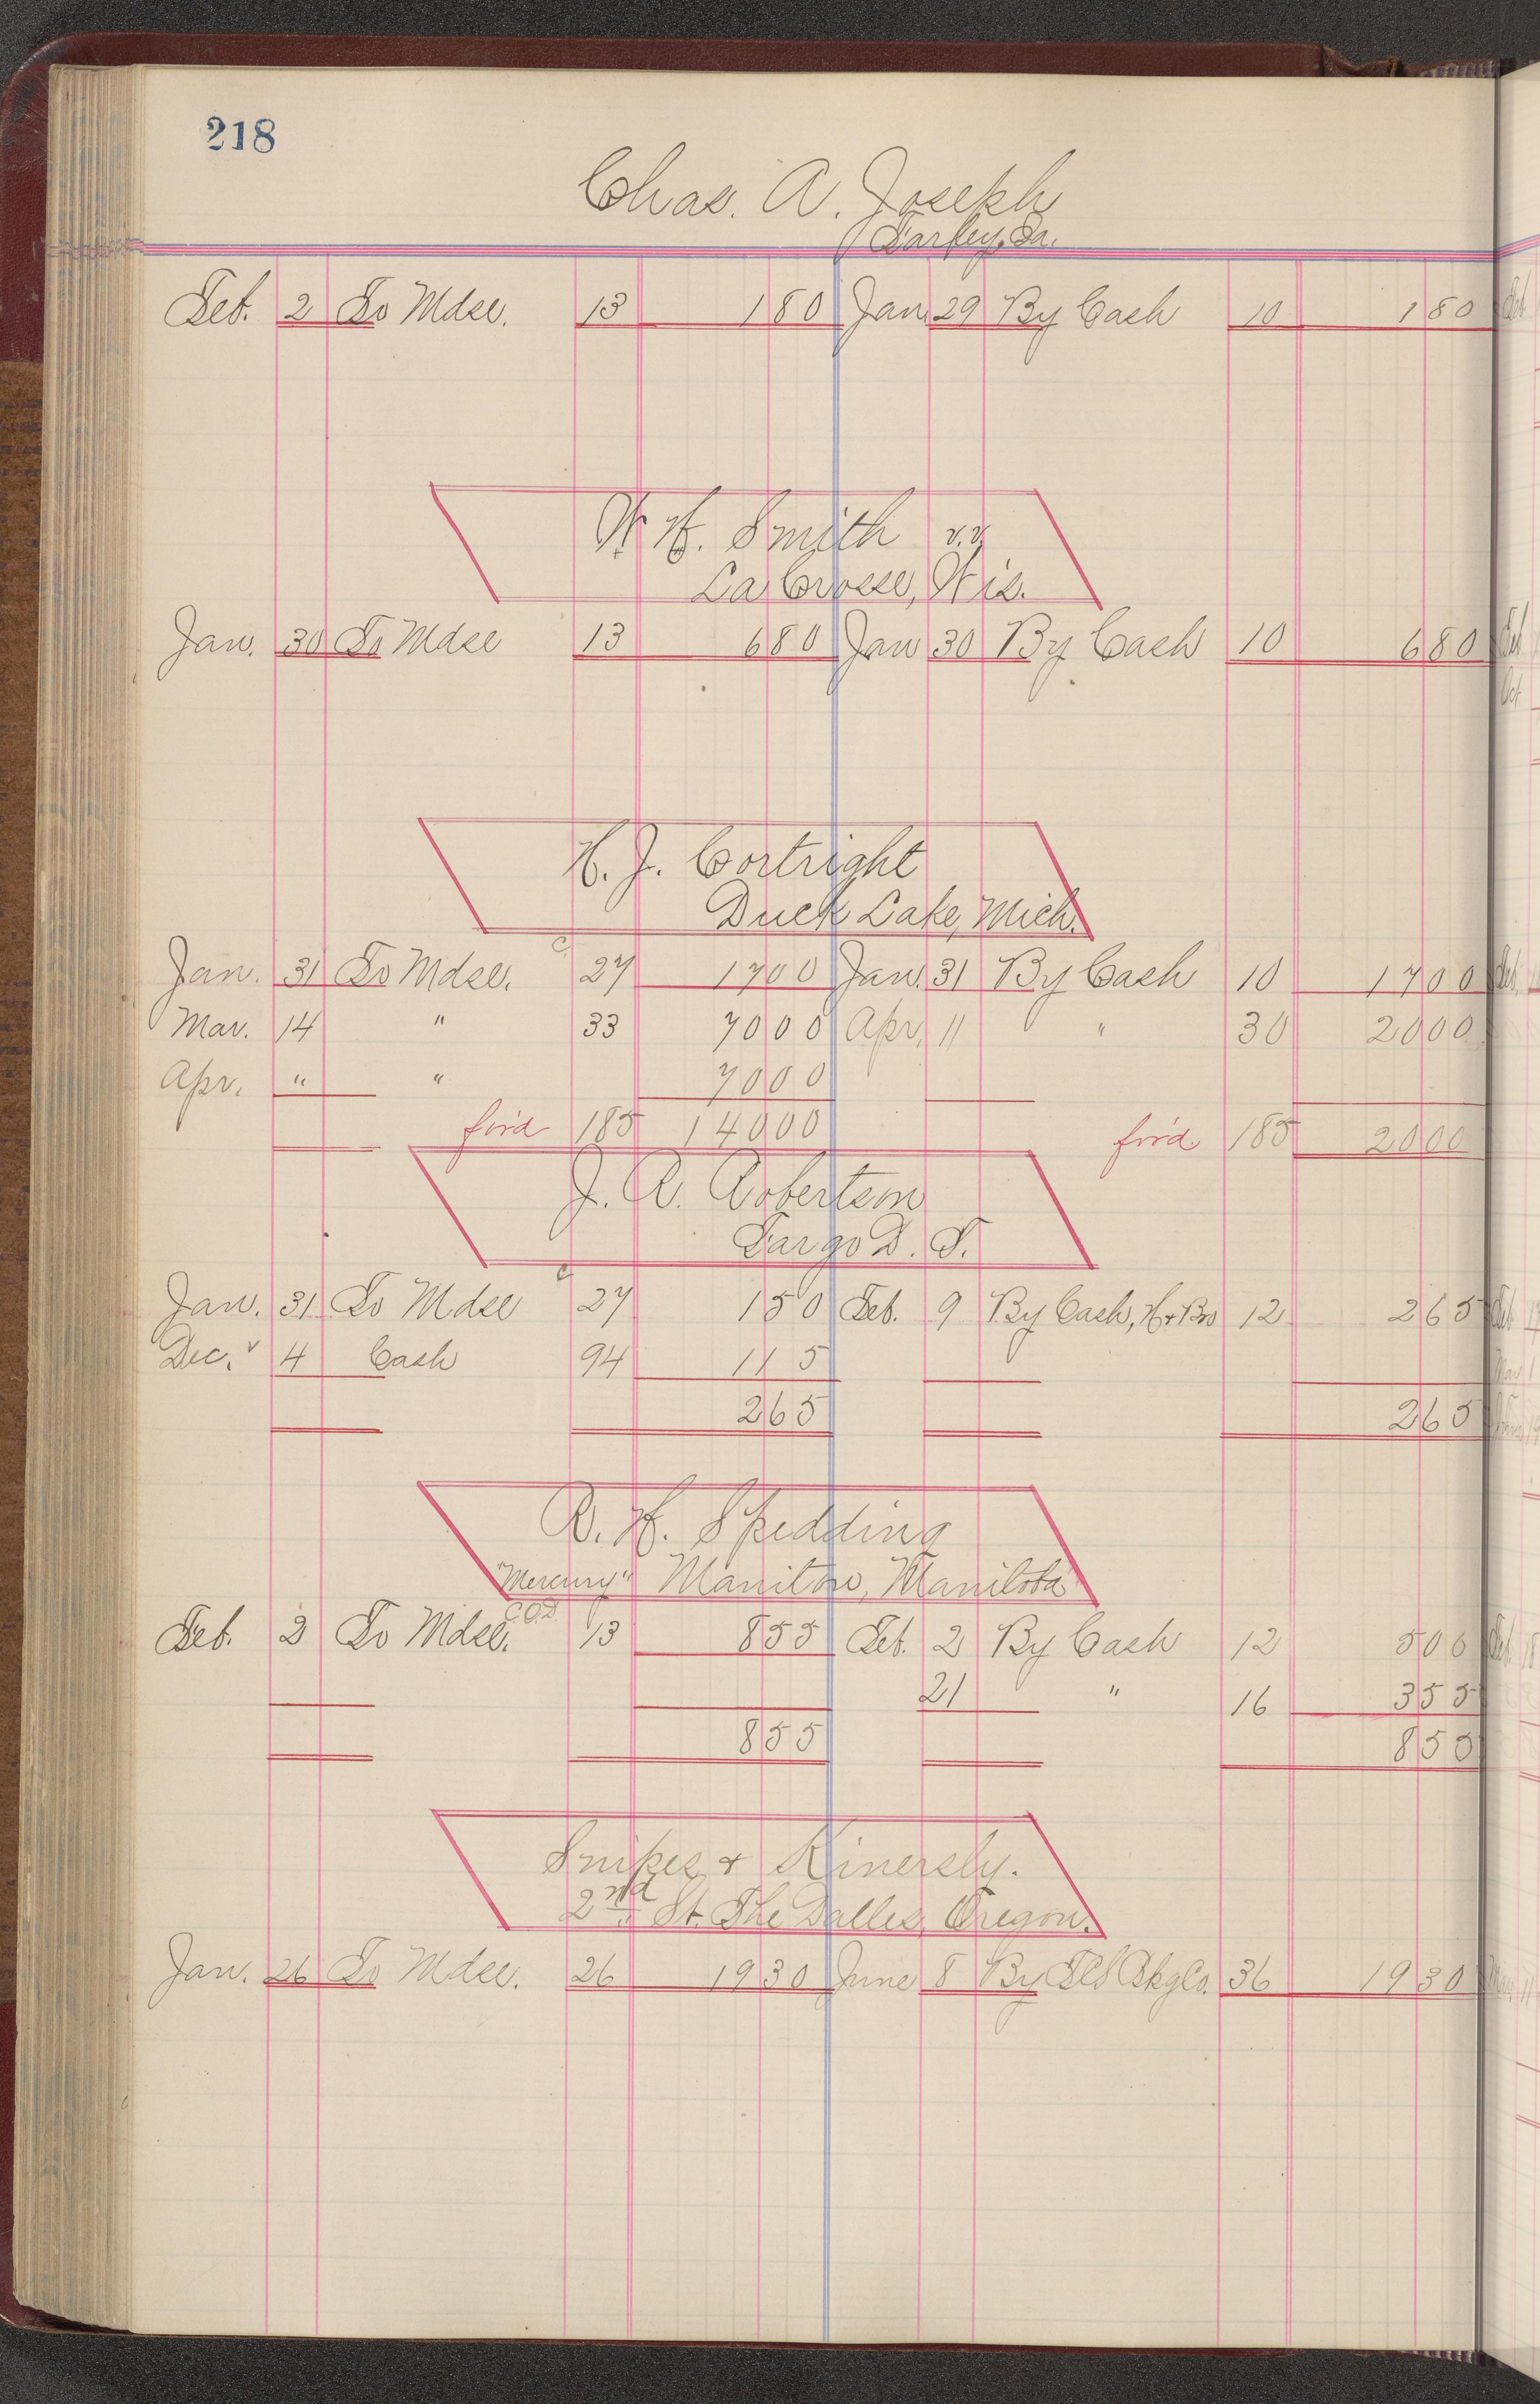 218
Chas. A. Joseph
Farley, Ia.
Feb. 2 To Mdse. 13 1 80 Jan 29 By Cash 10 1 80
W. H. Smith
La Crosse, Wis.
Jan. 30 To Mdse 13 6 80 Jan 30 By Cash 10 6 80
H. J. Cortright
Duck Lake, Mich.
Jan. 31 To Mdse. C 27 17 00 Jan. 31 By Cash 10 17 00
Mar. 14 " 33 70 00 Apr. 11 " 30 20 00
Apr. " " 70 00
for'd 185 140 00 for'd. 185 20 00
J. A. Robertson
Fargo D. T.
Jan. 31 To Mdse C 27 1 50 Feb. 9 By Cash, H & Bro 12 2 65
Dec. 4 Cash 94 1 15
2 65 2 65
R. H. Spedding
"Mercury" Manitou, Manitoba
Feb. 2 To Mdse. C.O.D. 13 8 55 Feb. 2 By Cash 12 5 00
21 " 16 3 55
8 55 8 55
Snipes & Kinersly.
2nd St. The Dalles, Oregon.
Jan. 26 To Mdse. 26 19 30 June 8 By Bkg Co. 36 19 30